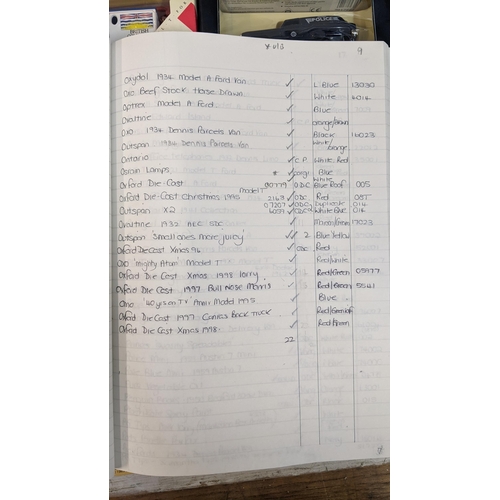 POLICE
BRITISH
9
Oxydol 1934 Model A Ford Van ✓ L. Blue 13030
Oxo Beef Stock Horse Drawn ✓ White 4014
Optrex Model A Ford ✓ Blue
Ovaltine ✓ orange/Brown
Oxo 1934 Dennis Parcels Van ✓ Black 14023
Outspan 1934 Dennis Parcels Van. ✓ White/orange
Ontario ✓ C.P White Red
Osram Lamps. * ✓ Corgi Blue
Oxford Die-Cast Model T 00779 ✓ O.D.C White Blue Roof 005
Oxford Die-Cast Christmas 1995 2163 ✓ ODC Red 08T
Outspan X2 07207 ✓ ODC Duplicate 014
✓ White Blue 014
Ovaltine 1932 AEC ✓ 17023
Outspan 'Small ones more juicy' ✓ 2 Blue Yellow
Oxford Die Cast Xmas 96 ✓ ODC Red
Oxo 'mighty Atom' Model T ✓ Red/white
Oxford Die Cast Xmas 1998 lorry. ✓ Red/Green 05977
Oxford Die Cast 1997 Bull Nose Morris ✓ Red/Green 5541
Omo '40 yrs on TV' Anniv Model 1995 ✓ Blue
Oxford Die Cast 1997 - Canvas Back Truck ✓
Oxford Die Cast Xmas 1998. ✓ Red/Green
22